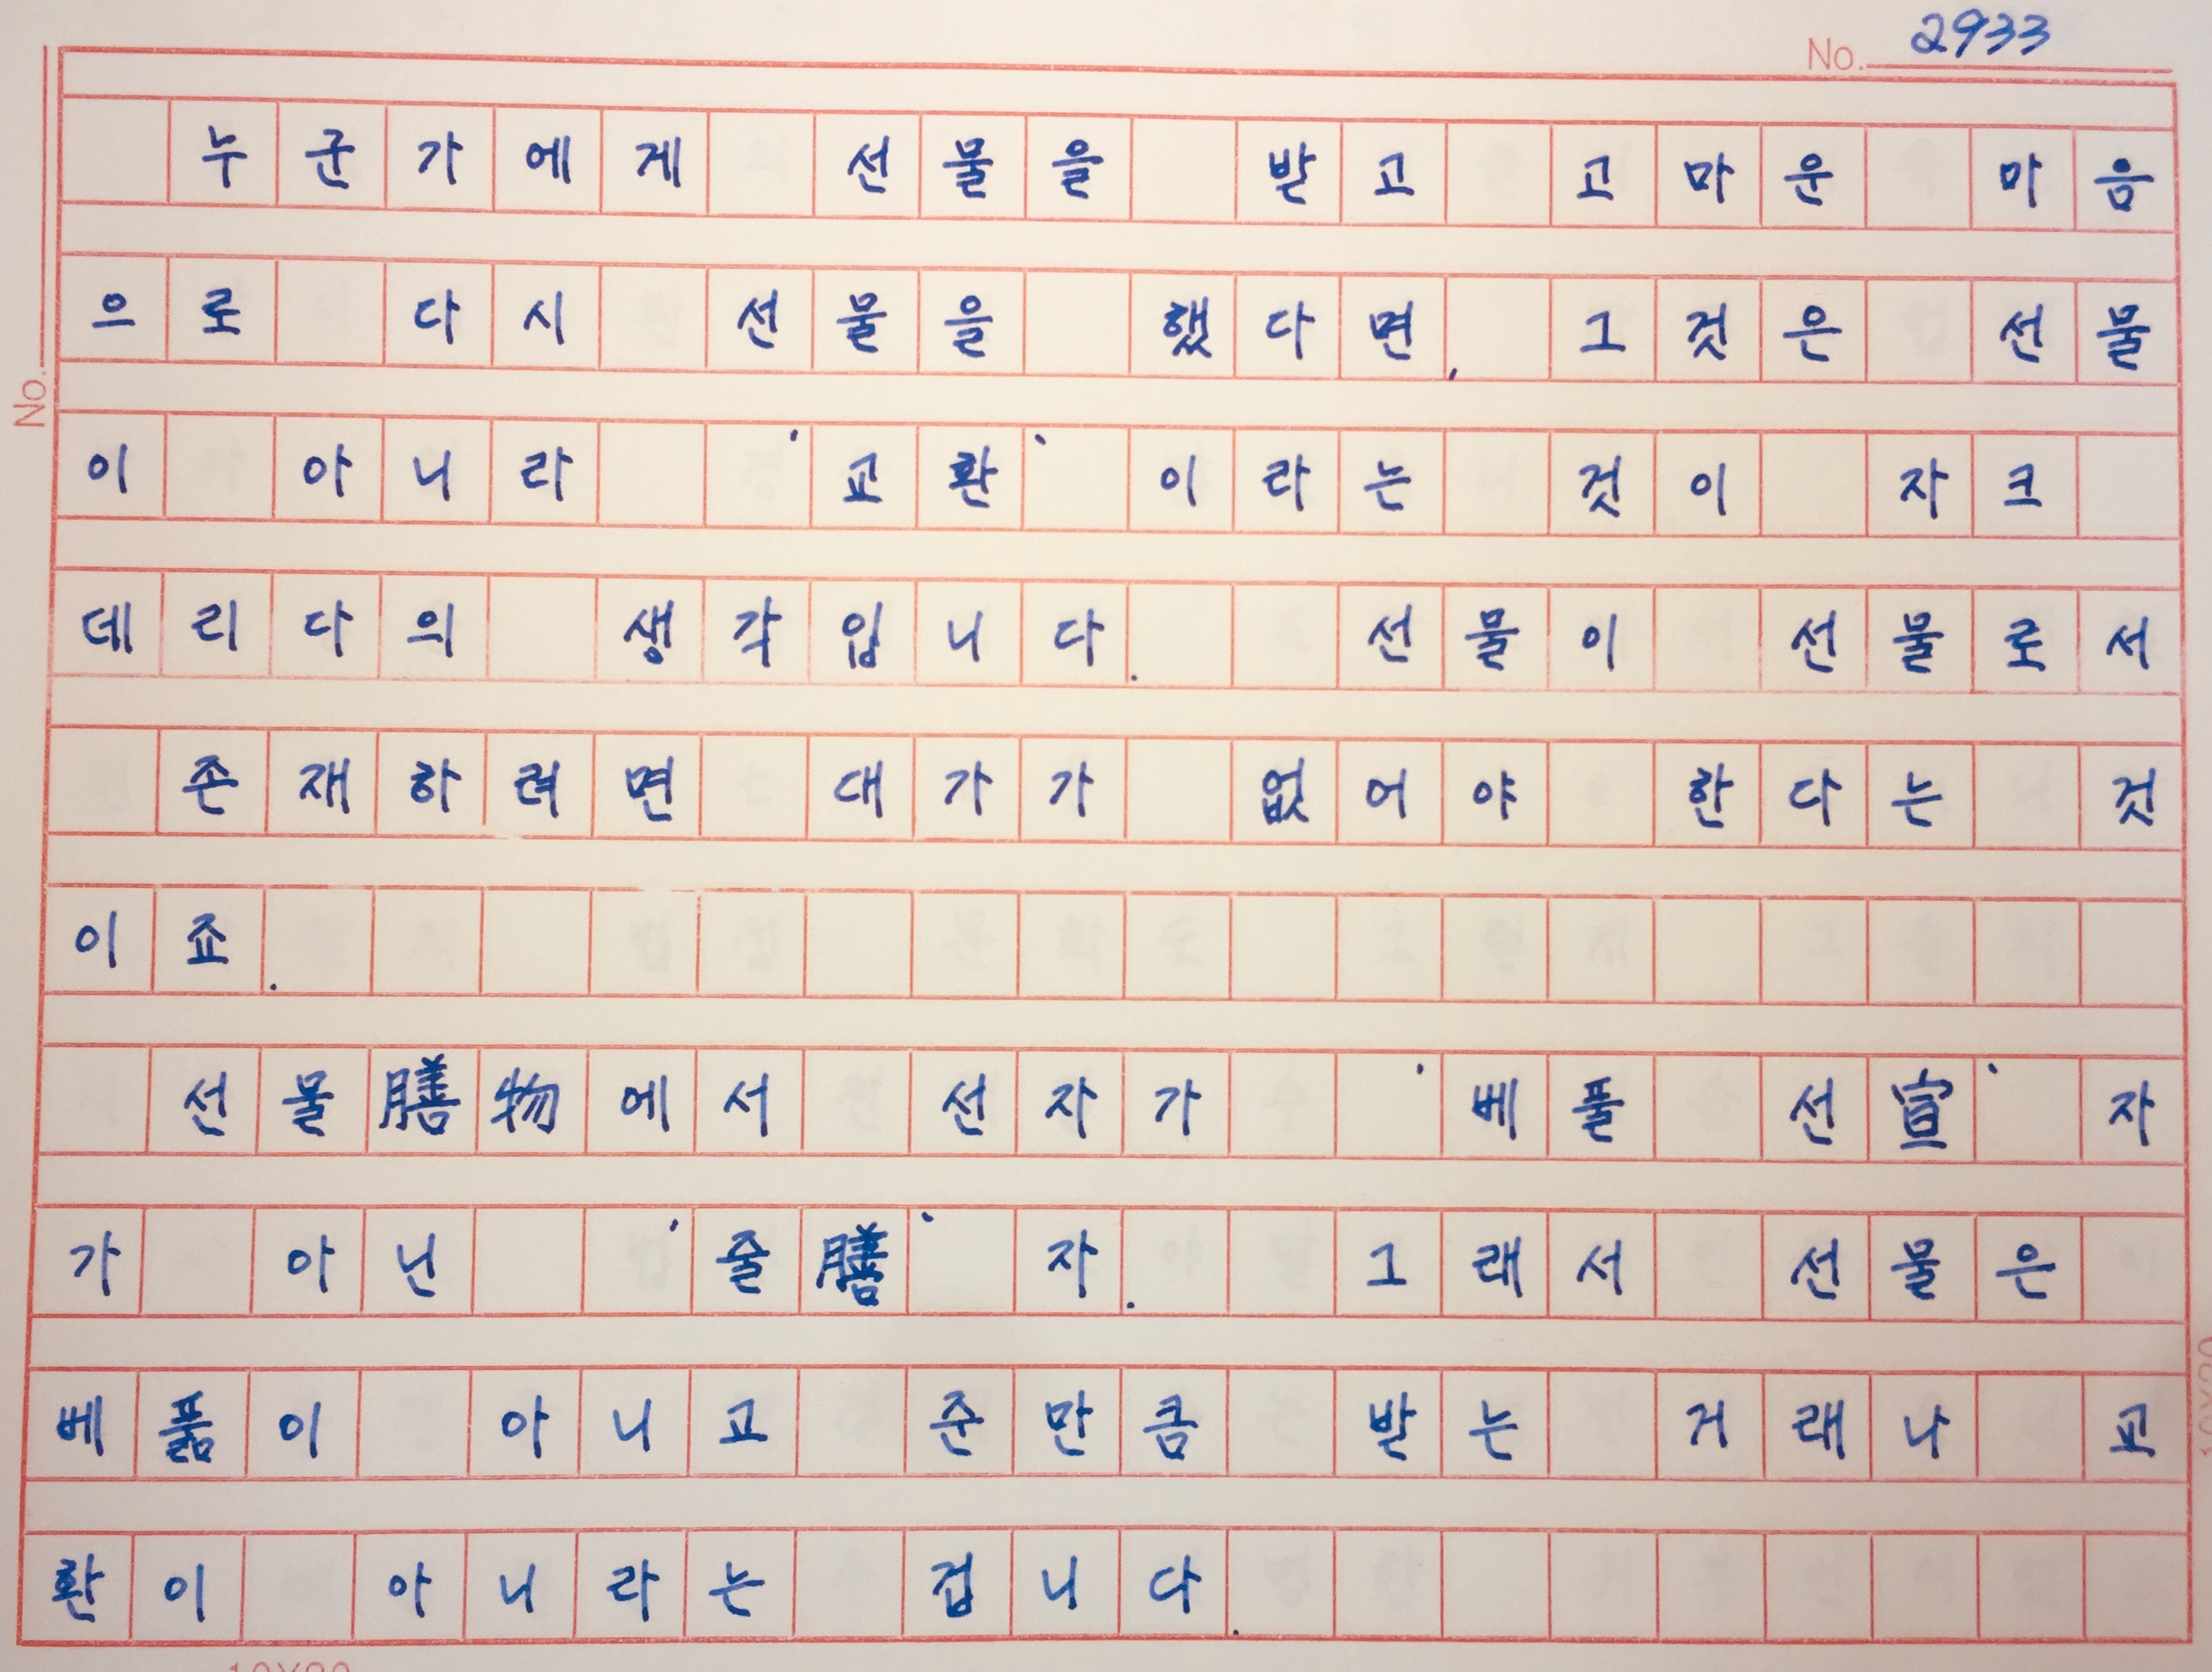 No. 2933
No.
누군가에게 선물을 받고 고마운 마음
으로 다시 선물을 했다면, 그것은 선물
이 아니라 '교환'이라는 것이 자크
데리다의 생각입니다. 선물이 선물로서
존재하려면 대가가 없어야 한다는 것
이죠.
선물膳物에서 선자가 '베풀 선宣' 자
가 아닌 '줄膳' 자. 그래서 선물은
베풂이 아니고 준만큼 받는 거래나 교
환이 아니라는 겁니다.
10X20